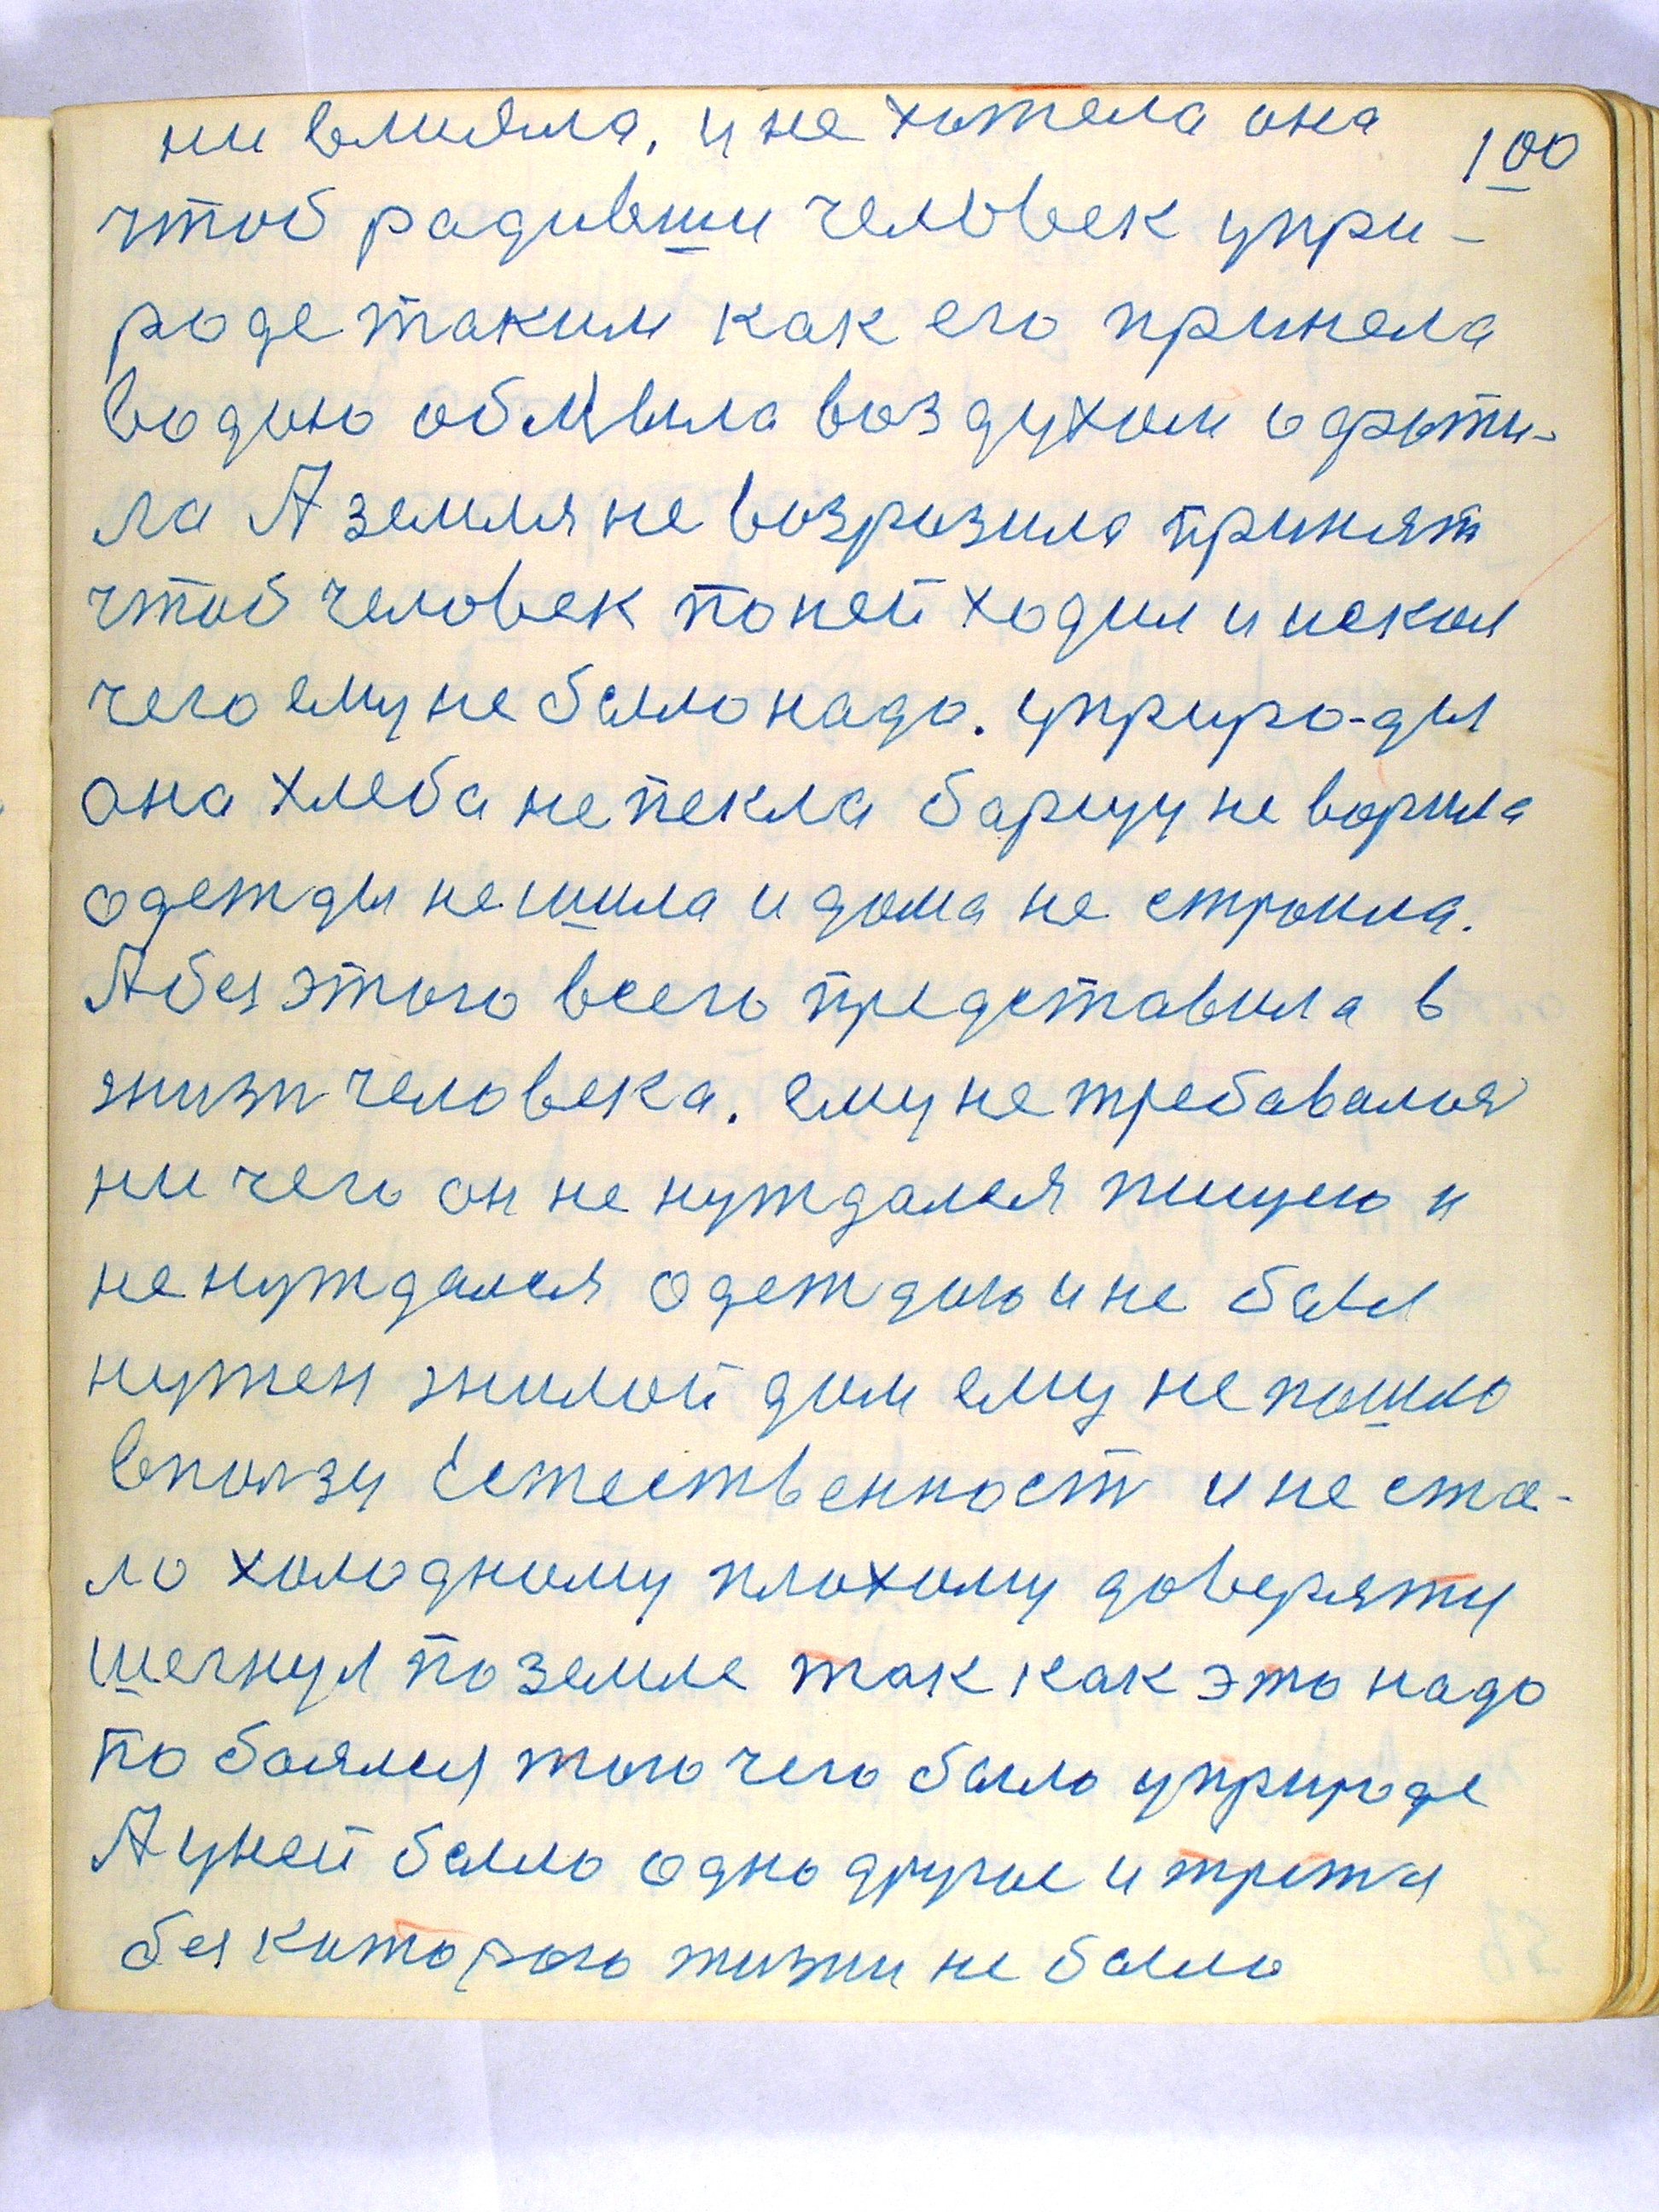 ни влияла, и не хотела она
100
чтоб радивши человек упри-
роде таким как его принела
водою обмывла воздухом
ла А земля не возрозила принят
чтоб человек по ней ходил и искал
чего ему не было надо. уприро-ды
она хлеба не пекла барщу не ворила
одежды не шила и дома не строила.
А без этого всего представила в
жизн человека. ему не требавался
ни чего он не нуждался пищею и
не нуждался одеждою и не был
нужен жилой дом ему не пошло
вползу Естественност и не ста-
ло холодному плохому доверяту
шегнул по земле так как это надо
по боялся того чего было уприроде
А уней было одно другое и трети
без которого жизни не было